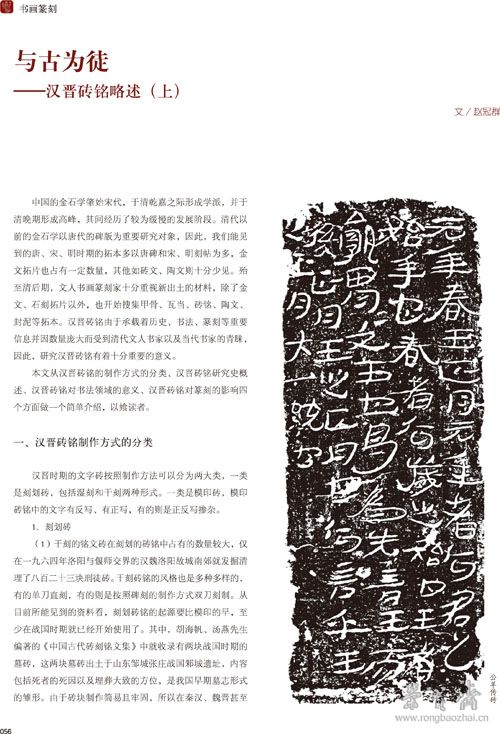 书画篆刻
与古为徒
——汉晋砖铭略述（上）
文 / 赵冠群
中国的金石学肇始宋代，于清乾嘉之际形成学派，并于
清晚期形成高峰，其间经历了较为缓慢的发展阶段。清代以
前的金石学以唐代的碑版为重要研究对象，因此，我们能见
到的唐、宋、明时期的拓本多以唐碑和宋、明刻帖为多，金
文拓片也占有一定数量，其他如砖文、陶文则十分少见。殆
至清后期，文人书画篆刻家十分重视新出土的材料，除了金
文、石刻拓片以外，也开始搜集甲骨、瓦当、砖铭、陶文、
封泥等拓本。汉晋砖铭由于承载着历史、书法、篆刻等重要
信息并因数量庞大而受到清代文人书家以及当代书家的青睐，
因此，研究汉晋砖铭有着十分重要的意义。
本文从汉晋砖铭的制作方式的分类、汉晋砖铭研究史概
述、汉晋砖铭对书法领域的意义、汉晋砖铭对篆刻的影响四
个方面做一个简单介绍，以飨读者。
一、汉晋砖铭制作方式的分类
汉晋时期的文字砖按照制作方法可以分为两大类，一类
是刻划砖，包括湿刻和干刻两种形式。一类是模印砖，模印
砖铭中的文字有反写、有正写，有的则是正反写掺杂。
1. 刻划砖
（1）干刻的铭文砖在刻划的砖铭中占有的数量较大，仅
在一九六四年洛阳与偃师交界的汉魏洛阳故城南郊就发掘清
理了八百二十三块刑徒砖。干刻砖铭的风格也是多种多样的，
有的单刀直刻，有的则是按照碑刻的制作方式双刀刻制。从
目前所能见到的资料看，刻划砖铭的起源要比模印的早，至
少在战国时期就已经开始使用了。其中，胡海帆、汤燕先生
编著的《中国古代砖刻铭文集》中就收录有两块战国时期的
墓砖，这两块墓砖出土于山东邹城张庄战国邾城遗址，内容
包括死者的死因以及埋葬大致的方位，是我国早期墓志形式
的雏形。由于砖块制作简易且牢固，所以在秦汉、魏晋甚至
元年春王正月元年者何君之
始年也春者何岁之始也王者
孰谓谓文王也曷为先言王而
后言正月王之正月也何言乎王
正月大一统也
公羊传砖
荣宝斋
www.rongbaozhai.cn
056